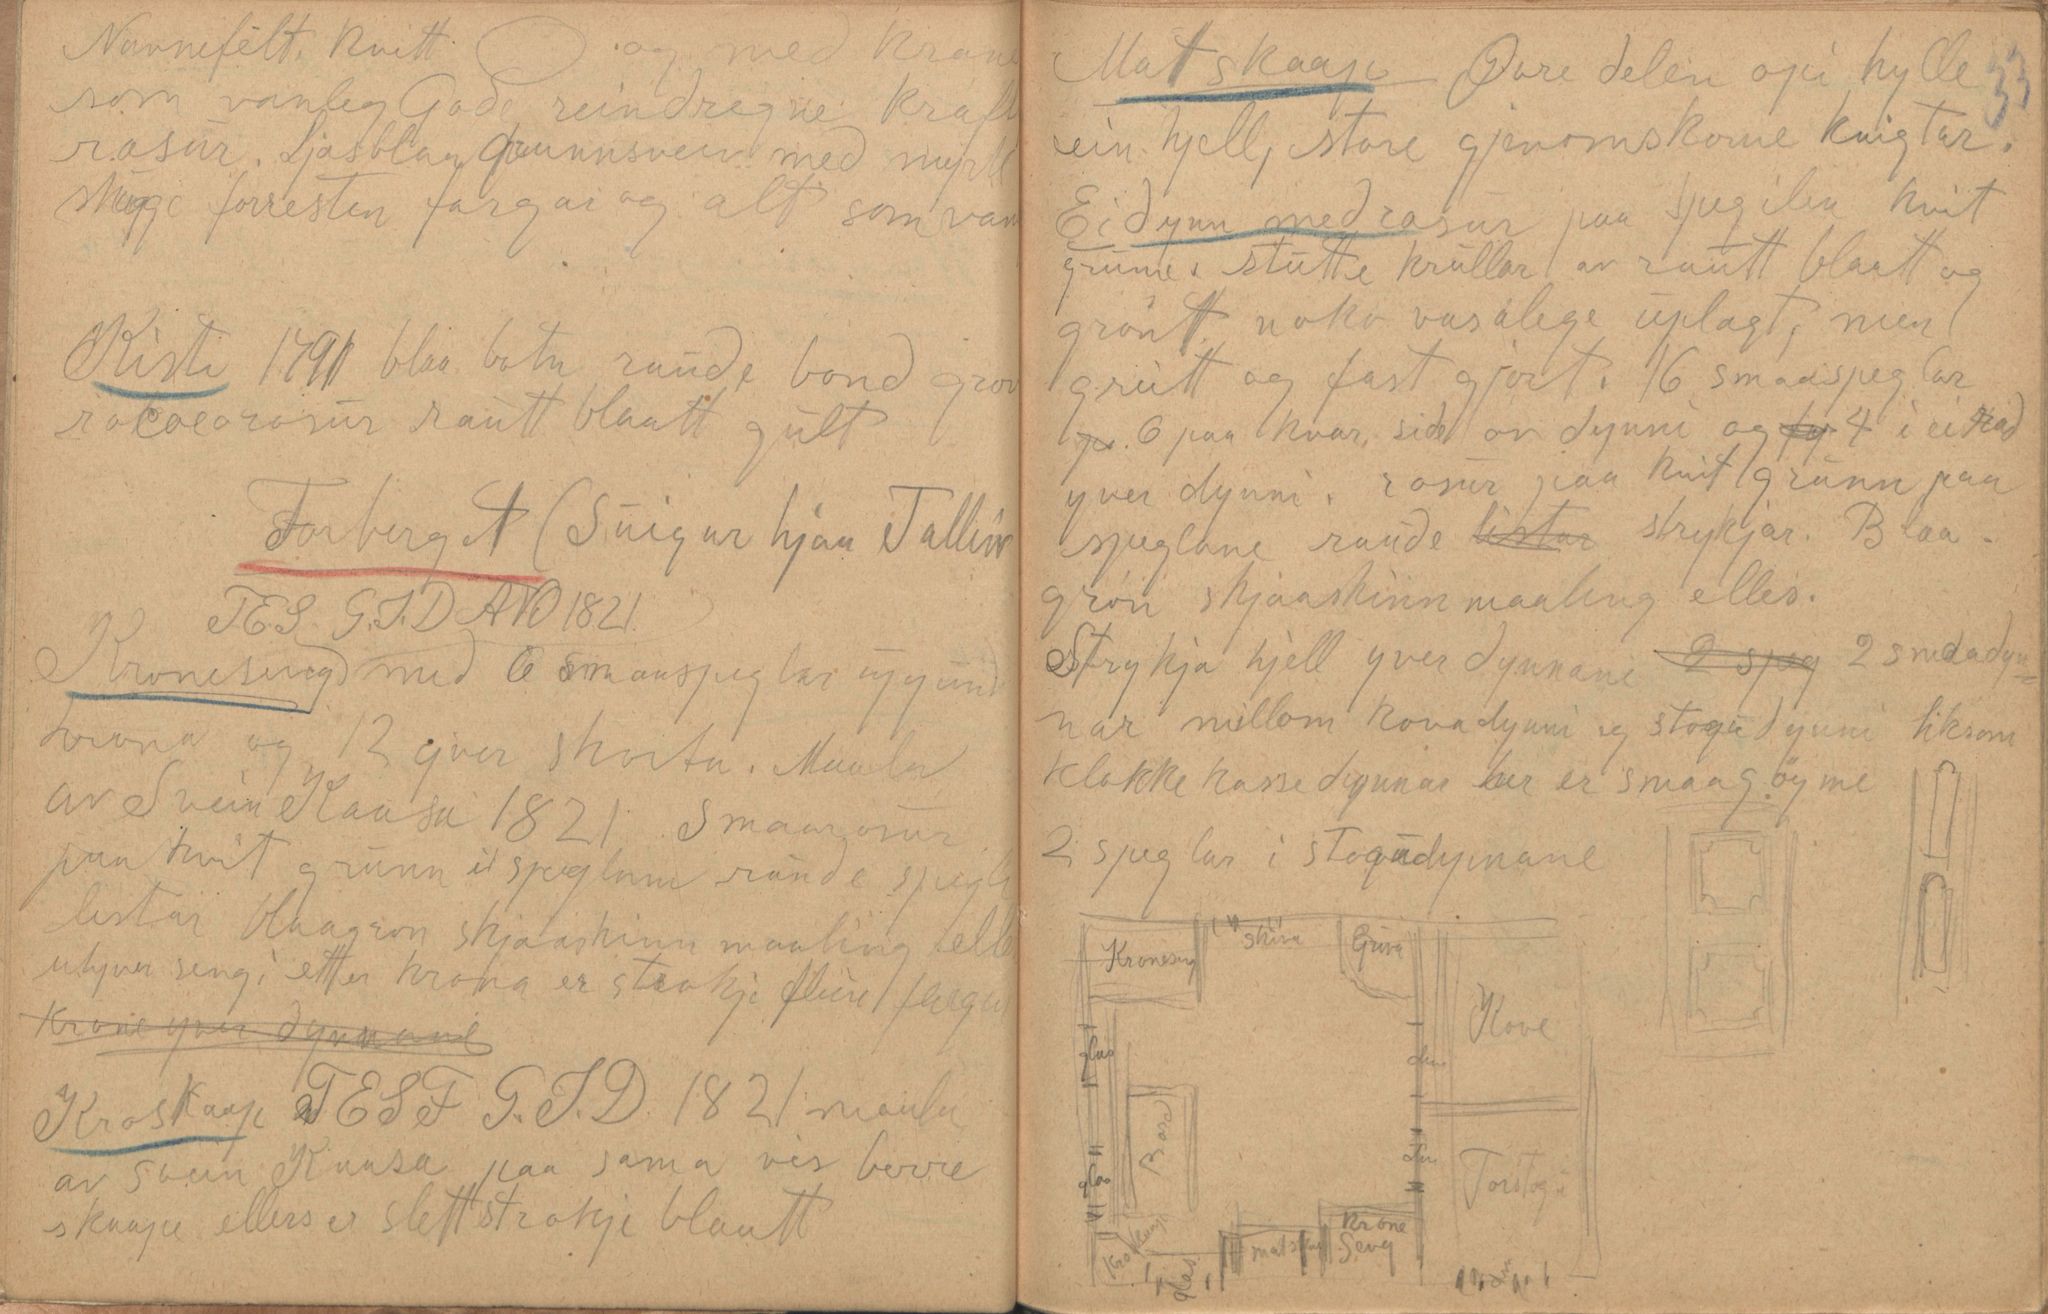 Navnefelt. kvitt og med krane
som vanleg Gode reindregne kraft
rosur. Ljosblaa grunnsveiv med myrk
skugge forresten fargar og alt som van
Kiste 1791 blaa botn raude bond grov
rococorosur rautt blaatt gult
Forberget (Suigur hjaa Tallin
T.E.S. G.I.D ANO 1821
Kroneseng med 6 smaaspeglar
krona og 12 yver skorta. Maala
av Svein Kaasa 1821 Smaarosur
paa kvit grunn i speglane raude spegl
listar blaagrøn skjaaskinn maaling elle
utyver sengi etter krona er strokje fleire fargar
Krone yver dynnane
Kroskaap TESF G.I.D. 1821 maala
av Svein Kaasa paa sama vis berre
skaape ellers er slett strokje blaatt
33
Matskaap Øvre delen opi hylle
ein hjell, store gjenomskorne kvigtar.
Ei dynn med rosur paa spegilen kvit
grunn. stutte krullar av rautt blaatt og
grønt noko vasalege uplagt, men
greitt og fast gjort. 16 smaaspeglar
6 paa kvar side av dynni og 4 i ei rad
yver dynni. rosur paa kvit grunn paa
speglane raude listar strykjar. Blaa-
grøn skjaaskinnmaaling elles.
Strykja hjell yver dynnane 2 speg 2 smaadyn-
nar millom kovadynni og stogudynni liksom
klokkekassedynnar her er smaagøyme
2 speglar i stogudynnane
Kroneseng skiva Gruva
Kove
glas
Bord
glas
Forstogu
Kroskaap
glas
matskap
Krone
Seng